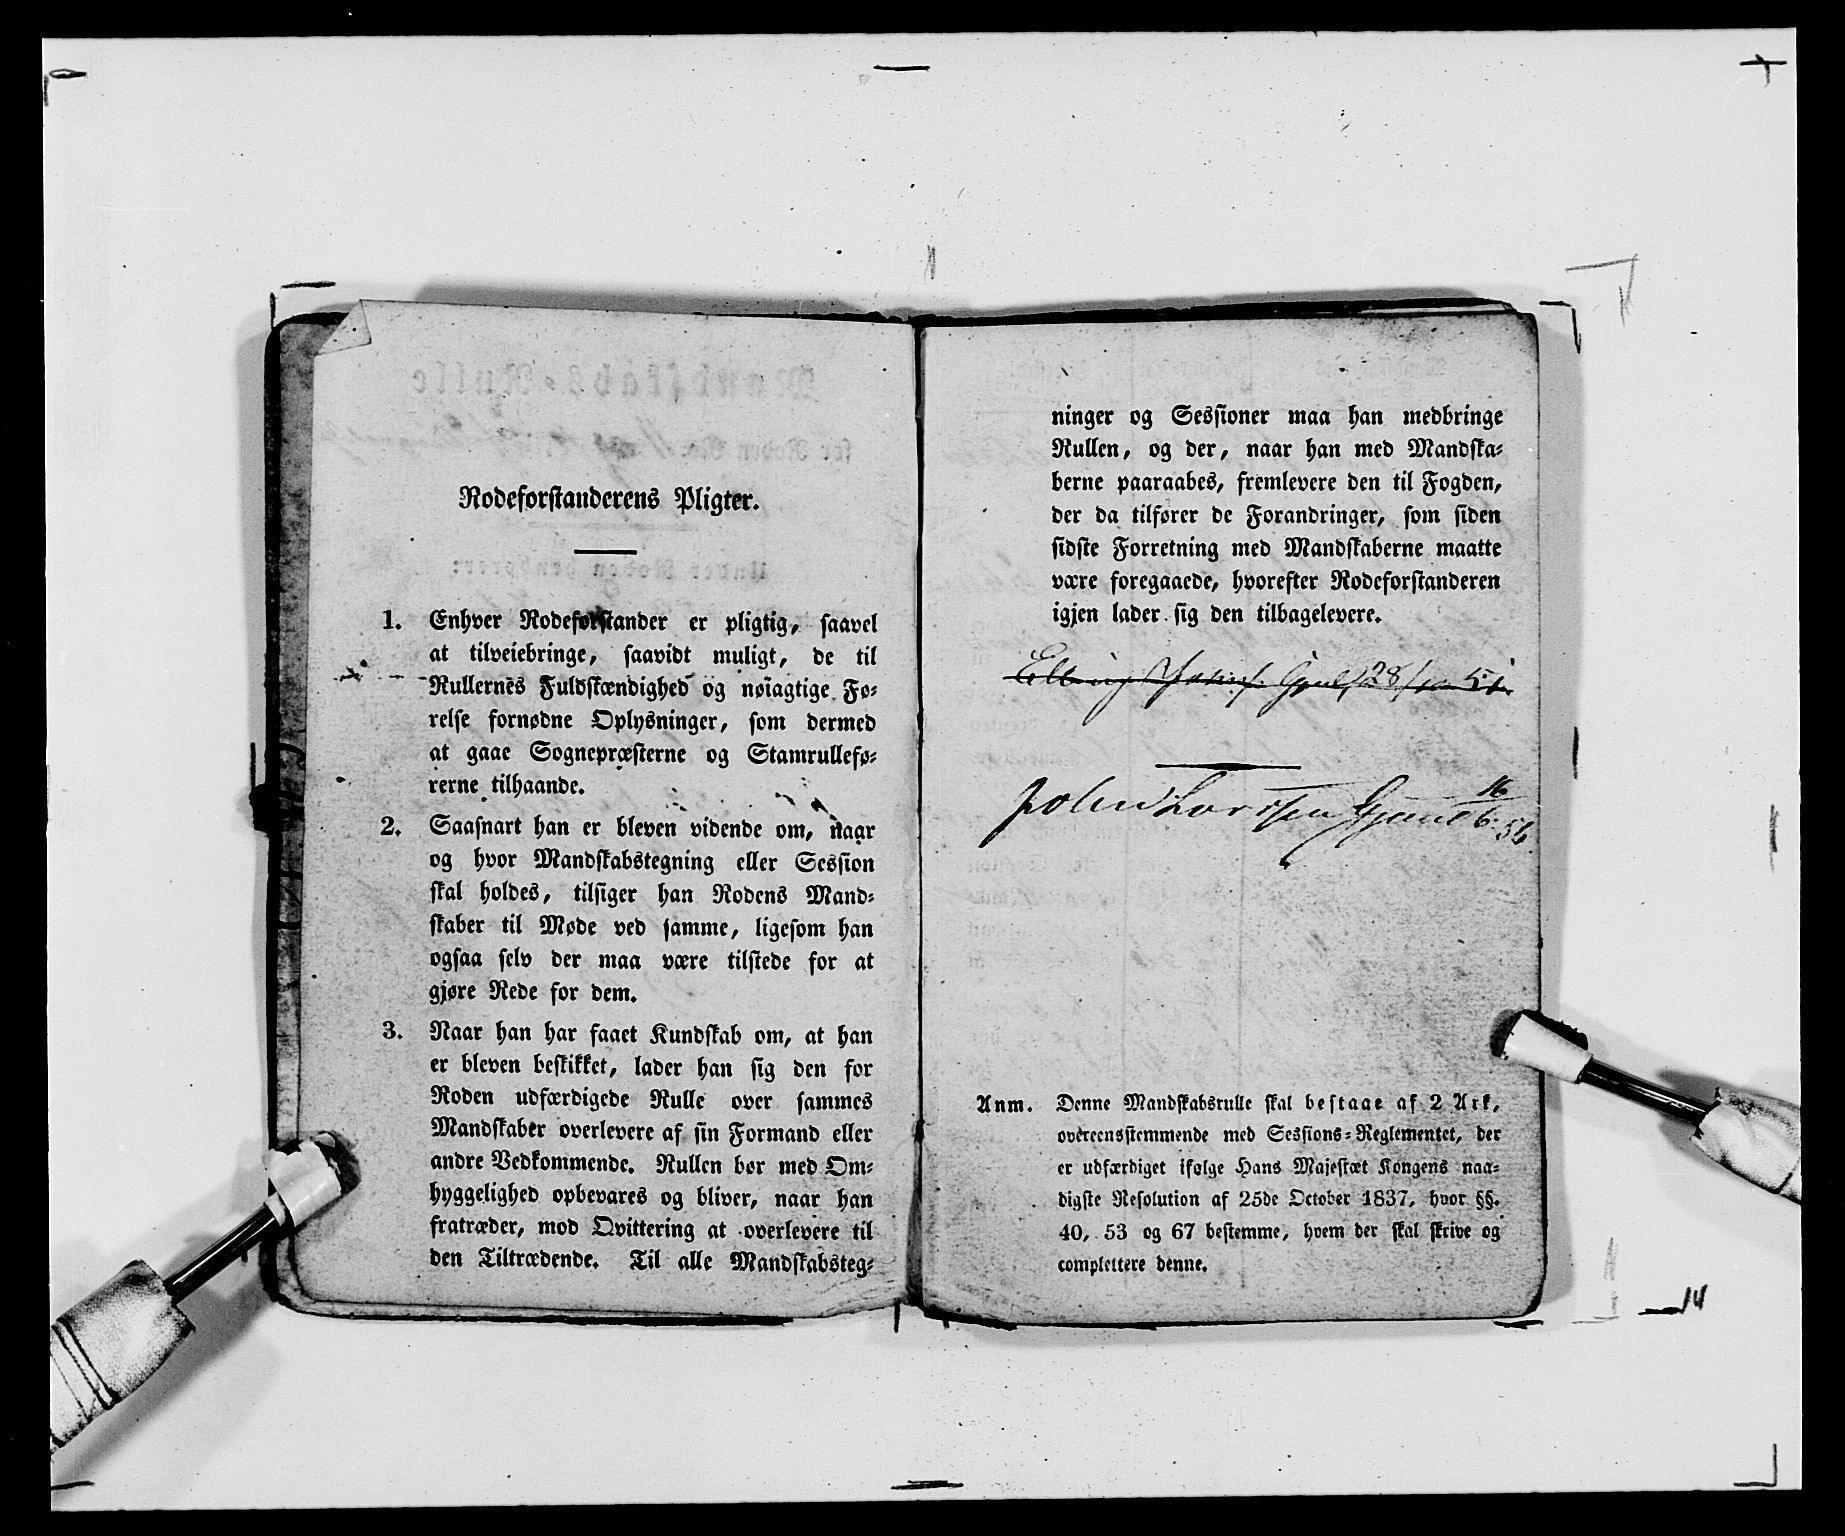 Rodeforstanderens Pligter.
1. Enhver Rodeforstander er pligtig, saavel
at tilveiebringe, saavidt muligt, de til
Rullernes Fuldstændighed og nøiagtige Fø-
relse fornødne Oplysninger, som dermed
at gaae Sognepræsterne og Stamrullefø-
rerne tilhaande.
2. Saasnart han er bleven vidende om, naar
og hvor Mandskabstegning eller Session
skal holdes, tilsiger han Rodens Mand-
skaber til Møde ved samme, ligesom han
ogsaa selv der maa være tilstede for at
gjøre Rede for dem.
3. Naar han har faaet Kundskab om, at han
er bleven beskikket, lader han sig den for
Roden udfærdigede Rulle over sammes
Mandskaber overlevere af sin Formand eller
andre Vedkommende. Rullen bør med Om-
hyggelighed opbevares og bliver, naar han
fratræder, mod Qvittering at overlevere til
den Tiltrædende. Til alle Mandskabsteg-
ninger og Sessioner maa han medbringe
Rullen, og der, naar han med Mandska-
berne paaraabes, fremlevere den til Fogden,
der da tilfører de Forandringer, som siden
sidste Forretning med Mandskaberne maatte
være foregaaede, hvorefter Rodeforstanderen
igjen lader sig den tilbagelevere.
28/10 51.
John Larssen 16/6 54
Anm. Denne Mandskabsrulle skal bestaae af 2 Ark,
overeensstemmende med Sessions-Reglementet, der
er udfærdiget ifølge Hans Majestæt Kongens naa-
digste Resolution af 25de October 1837, hvor §§.
40, 53 og 67 bestemme, hvem der skal skrive og
complettere denne.
14